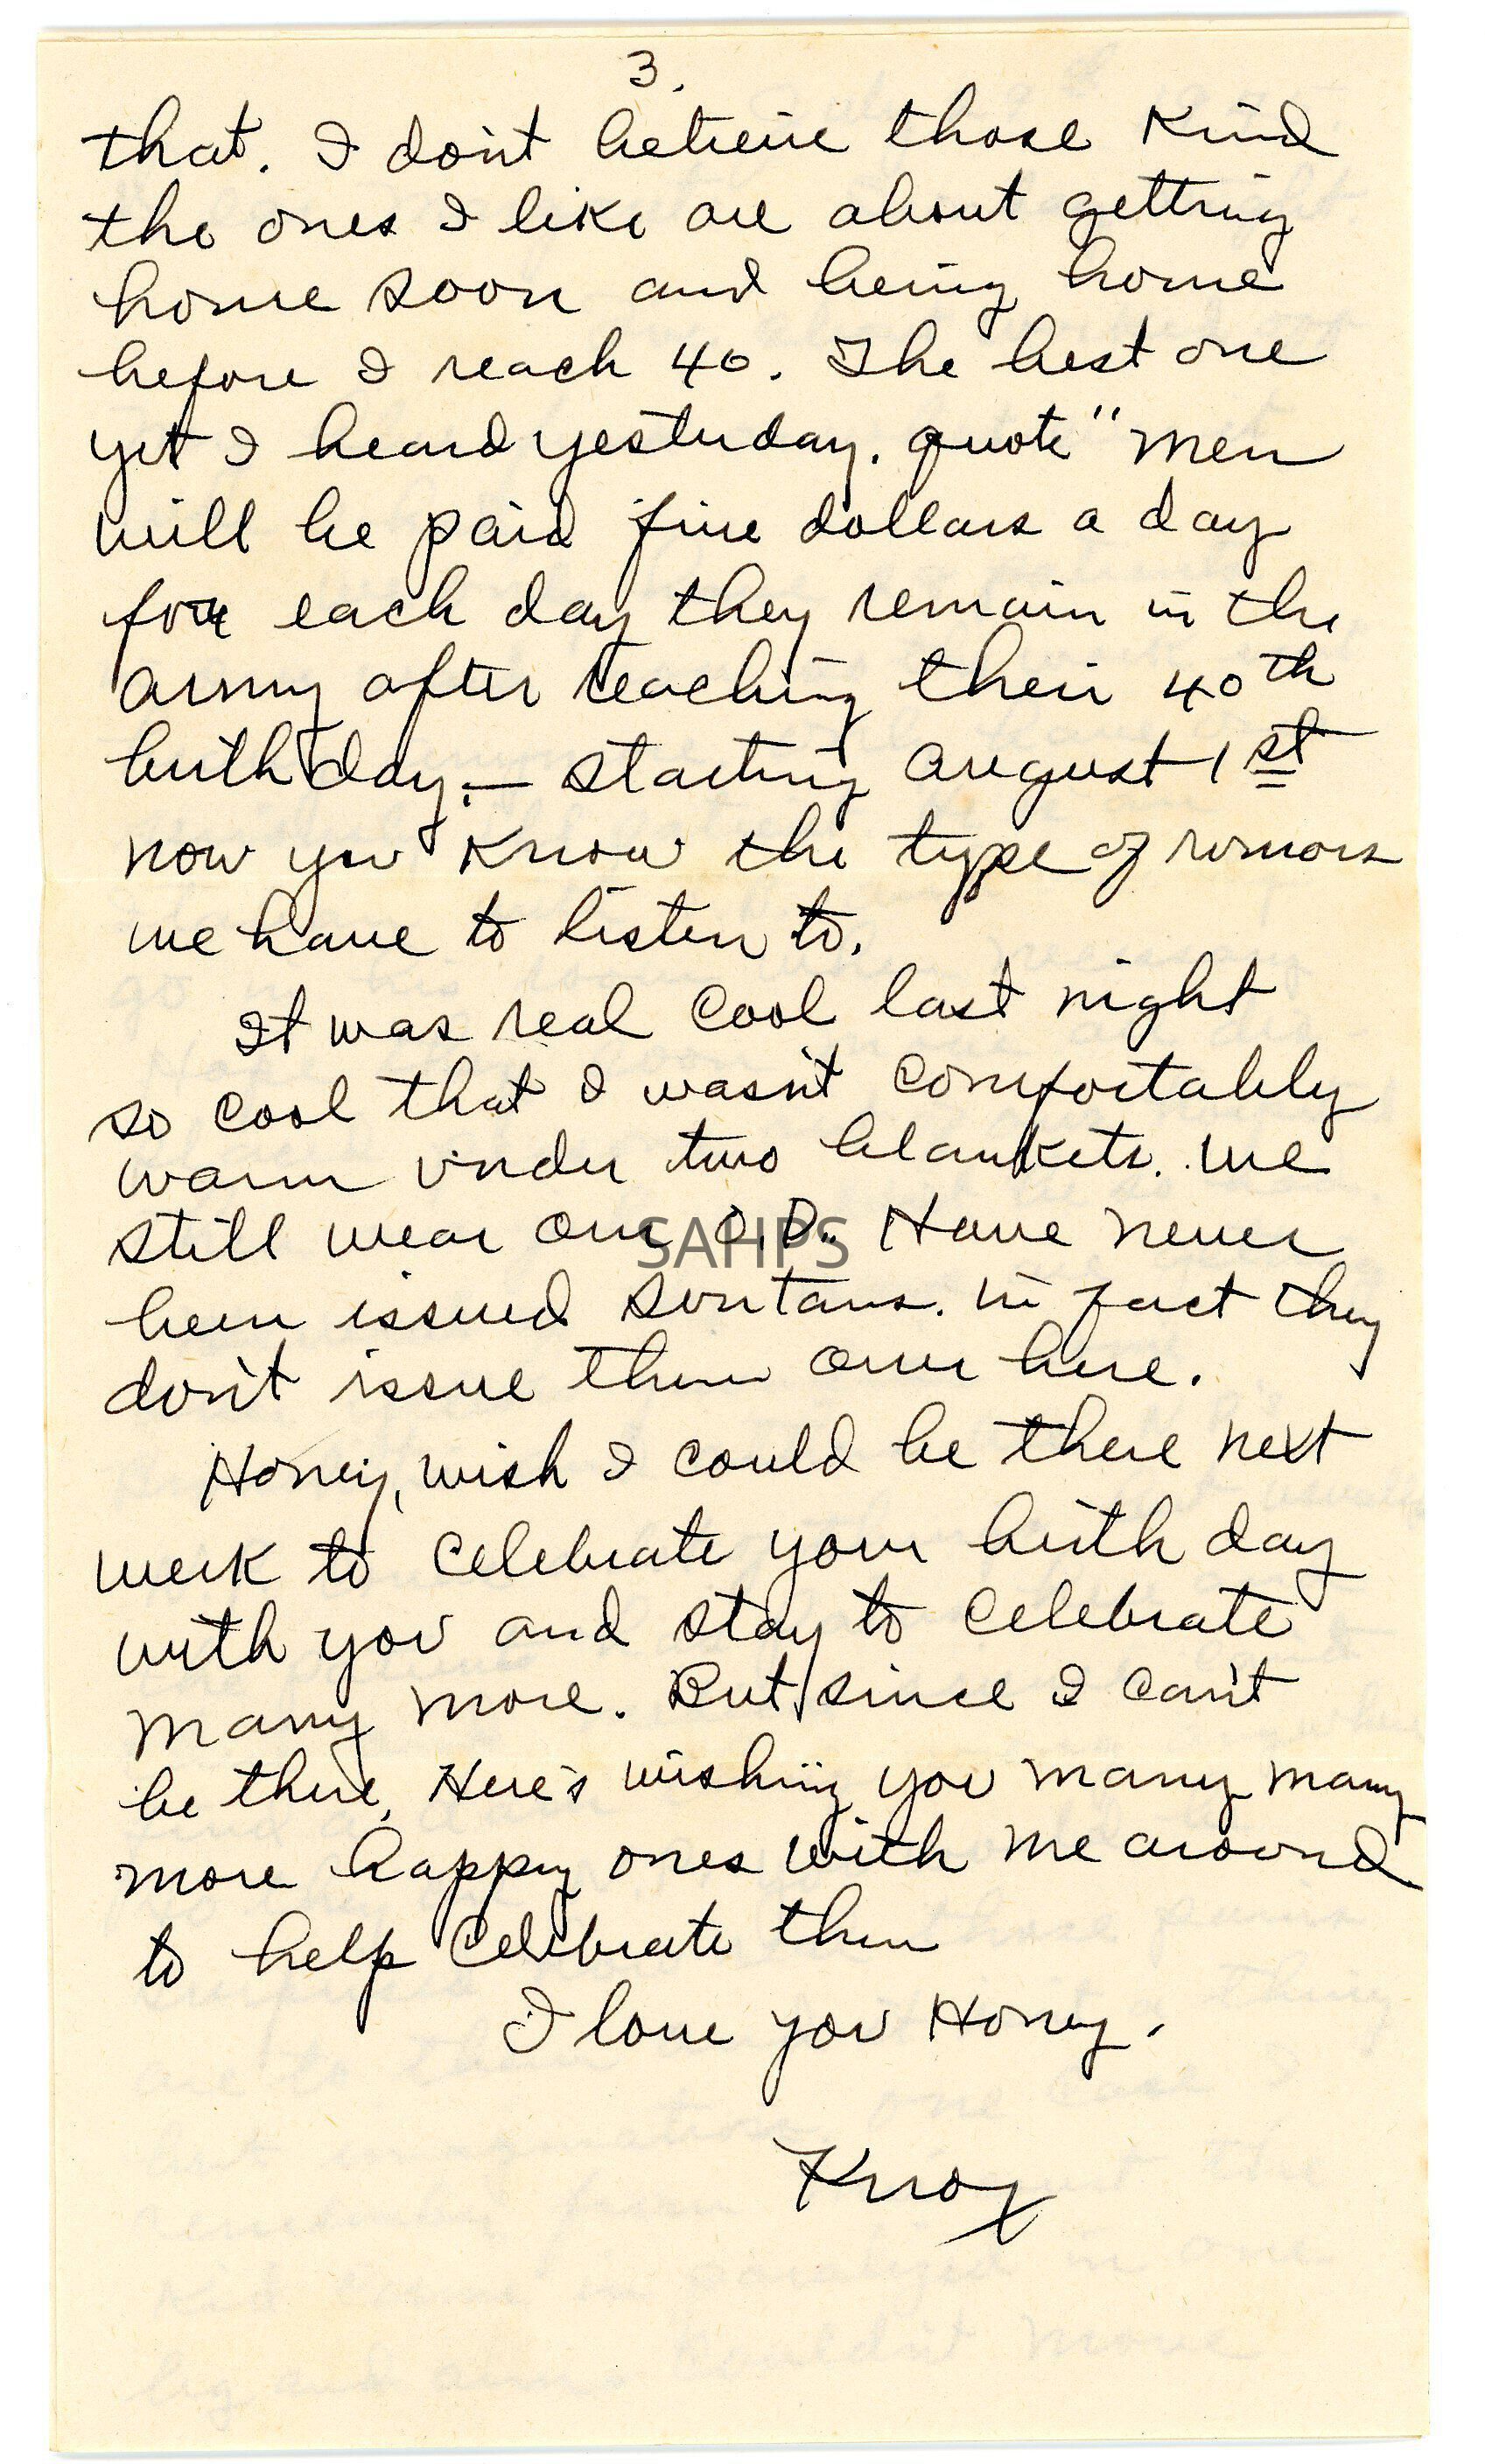 3.
that. I don't believe those kind
the ones I like are about getting
home soon and being home
before I reach 40. The best one
yet I heard yesterday. quote "Men
will be paid five dollars a day
for each day they remain in the
army after reaching their 40th
birthday. — Starting august 1st
now you know the type of rumors
we have to listen to.
It was real cool last night
so cool that I wasn't comfortably
warm under two blankets. we
still wear our O.D.. Have never
been issued suntans. in fact they
don't issue them over here.
Honey, wish I could be there next
week to celebrate your birth day
with you and stay to celebrate
many more. But since I can't
be there, Here's wishing you many many
more happy ones with me around
to help celebrate them
I love you Honey.
Knox
SAHPS